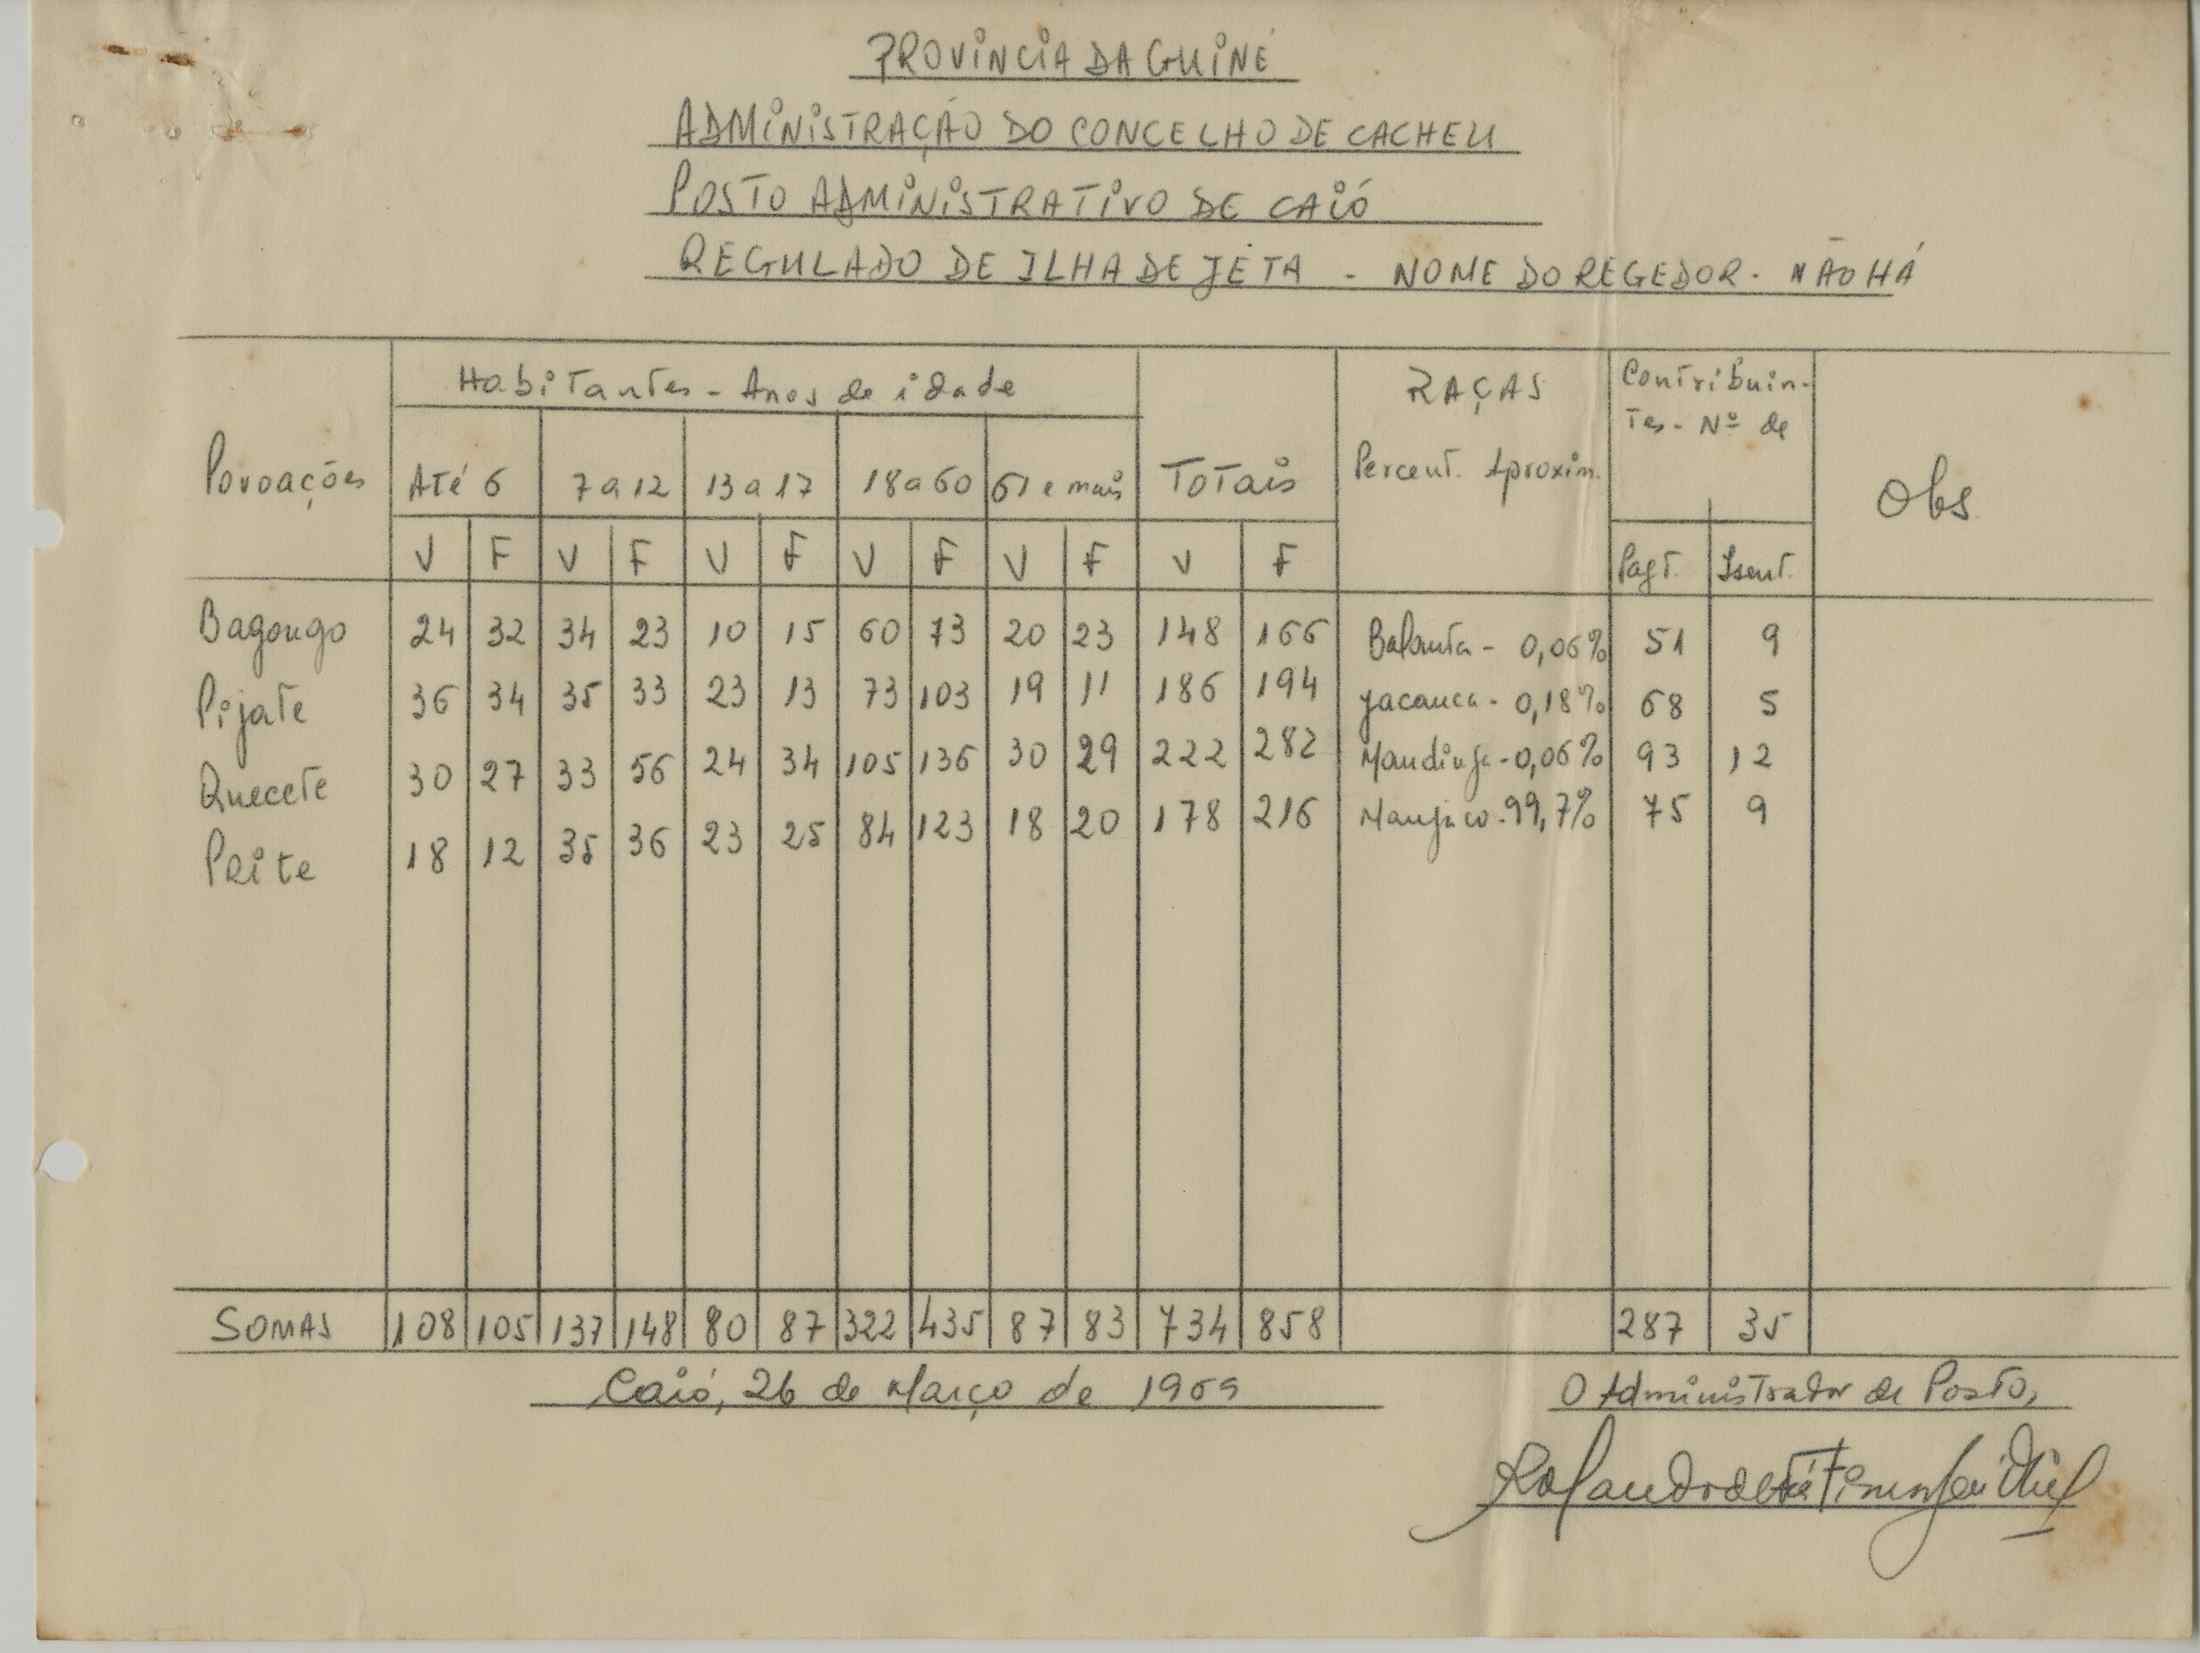 PROVINCIA DA GUINÉ
ADMINISTRAÇÃO DO CONCELHO DE CACHEU
POSTO ADMINISTRATIVO DE CAIÓ
REGULADO DE ILHA DE JETA - NOME DO REGEDOR - NÃO HÁ
Povoações Habitantes - Anos de idade Totais RAÇAS Percent. Aproxim. Contribuin-tes - Nº de Obs
Até 6 7 a 12 13 a 17 18 a 60 61 e mais
V F V F V F V F V F V F Pagt. Isent.
Bagongo 24 32 34 23 10 15 60 73 20 23 148 166 Balanta - 0,06% 51 9
Pijate 36 34 35 33 23 13 73 103 19 11 186 194 Jacanca - 0,18% 68 5
Quecete 30 27 33 56 24 34 105 136 30 29 222 282 Mandinga - 0,06% 93 12
Peite 18 12 35 36 23 25 84 123 18 20 178 216 Manjaco - 99,7% 75 9
SOMAS 108 105 137 148 80 87 322 435 87 83 734 858 287 35
Caió, 26 de Março de 1969
O Administrador de Posto,